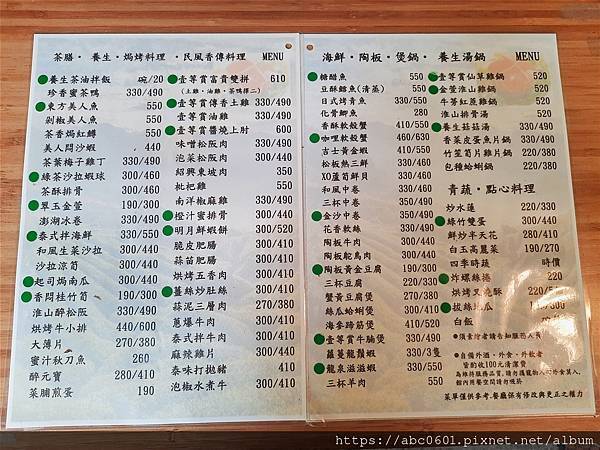 茶膳．養生．焗烤料理．民風香傳料理 MENU
養生茶油拌飯 碗/20
珍香蜜茶鴨 330/490
東方美人魚 550
剁椒美人魚 550
茶香焗紅鱒 550
美人悶沙蝦 440
茶葉梅子雞丁 330/460
綠茶沙拉蝦球 300/460
茶酥排骨 300/460
翠玉金萱 190/300
澎湖冰卷 330/490
泰式拌海鮮 330/550
和風生菜沙拉 300/440
沙拉涼筍 300/440
起司焗南瓜 300/440
香悶桂竹筍 190/300
淮山醉松阪 330/490
烘烤牛小排 440/600
大薄片 270/380
蜜汁秋刀魚 260
醉元寶 280/410
菜脯煎蛋 190
壹等賞富貴雙拼 610
(土雞．油雞．茶鴨擇二)
壹等賞傳香土雞 330/490
壹等賞油雞 330/490
壹等賞醬燒上肘 600
味噌松阪肉 330/410
泡菜松阪肉 330/410
紹興東坡肉 350
枇杷雞 550
南洋椒麻雞 330/490
橙汁蜜排骨 300/410
明月鮮蝦餅 300/520
脆皮肥腸 300/410
蒜苗肥腸 300/410
烘烤五香肉 300/410
薑絲炒肚絲 300/410
蒜泥三層肉 270/380
蔥爆牛肉 300/410
泰式拌牛肉 300/410
麻辣雞片 300/440
泰味打拋豬 300/410
泡椒水煮牛 300/410
海鮮．陶板．煲鍋．養生湯鍋 MENU
糖醋魚 550
豆酥鱈魚(清蒸) 550
日式烤青魚 330/550
化骨鯽魚 280
香酥軟殼蟹 330/550
咖哩軟殼蟹 400/630
吉士黃金蝦 330/550
松板熱三鮮 330/360
XO蘆筍鮮貝 330/550
和風中卷 330/550
三杯中卷 350/490
金沙中卷 350/490
花香軟絲 330/550
陶板牛肉 300/440
陶板鴕鳥肉 300/440
陶板黃金豆腐 330/360
三杯豆腐 220/330
蟹黃豆腐煲 270/380
絲瓜蛤蜊煲 300/410
海參蹄筋煲 410/520
壹等賞牛腩煲 330/550
蘿蔓龍鬚蝦 330/3隻
龍泉滋滋蝦 330/550
三杯羊肉 550
壹等賞仙草雞鍋 520
金萱淮山雞鍋 520
牛蒡紅菇雞鍋 520
淮山排骨湯 520
養生菇菇湯 330/490
香菜皮蛋魚片鍋 330/490
竹笙筍片雞片鍋 330/490
包種蛤蜊鍋 330/490
青蔬．點心料理
炒水蓮 220/330
綠竹雙蛋 300/440
鮮炒半天花 280/410
白玉高麗菜 190/270
四季時蔬 時價
炸螺絲捲 220
烘烤叉燒酥 220/550
拔絲地瓜
白飯
●須素燴者請告知服務人員
●自備外酒．外食．外飲者
皆酌收100元清潔費
為維持服務品質，請勿攜寵物入內外食其入，
館內用餐空間請勿吸菸
菜單僅供參考．餐廳保有修改與更正之權力
https://abc0601.pixnet.net/album